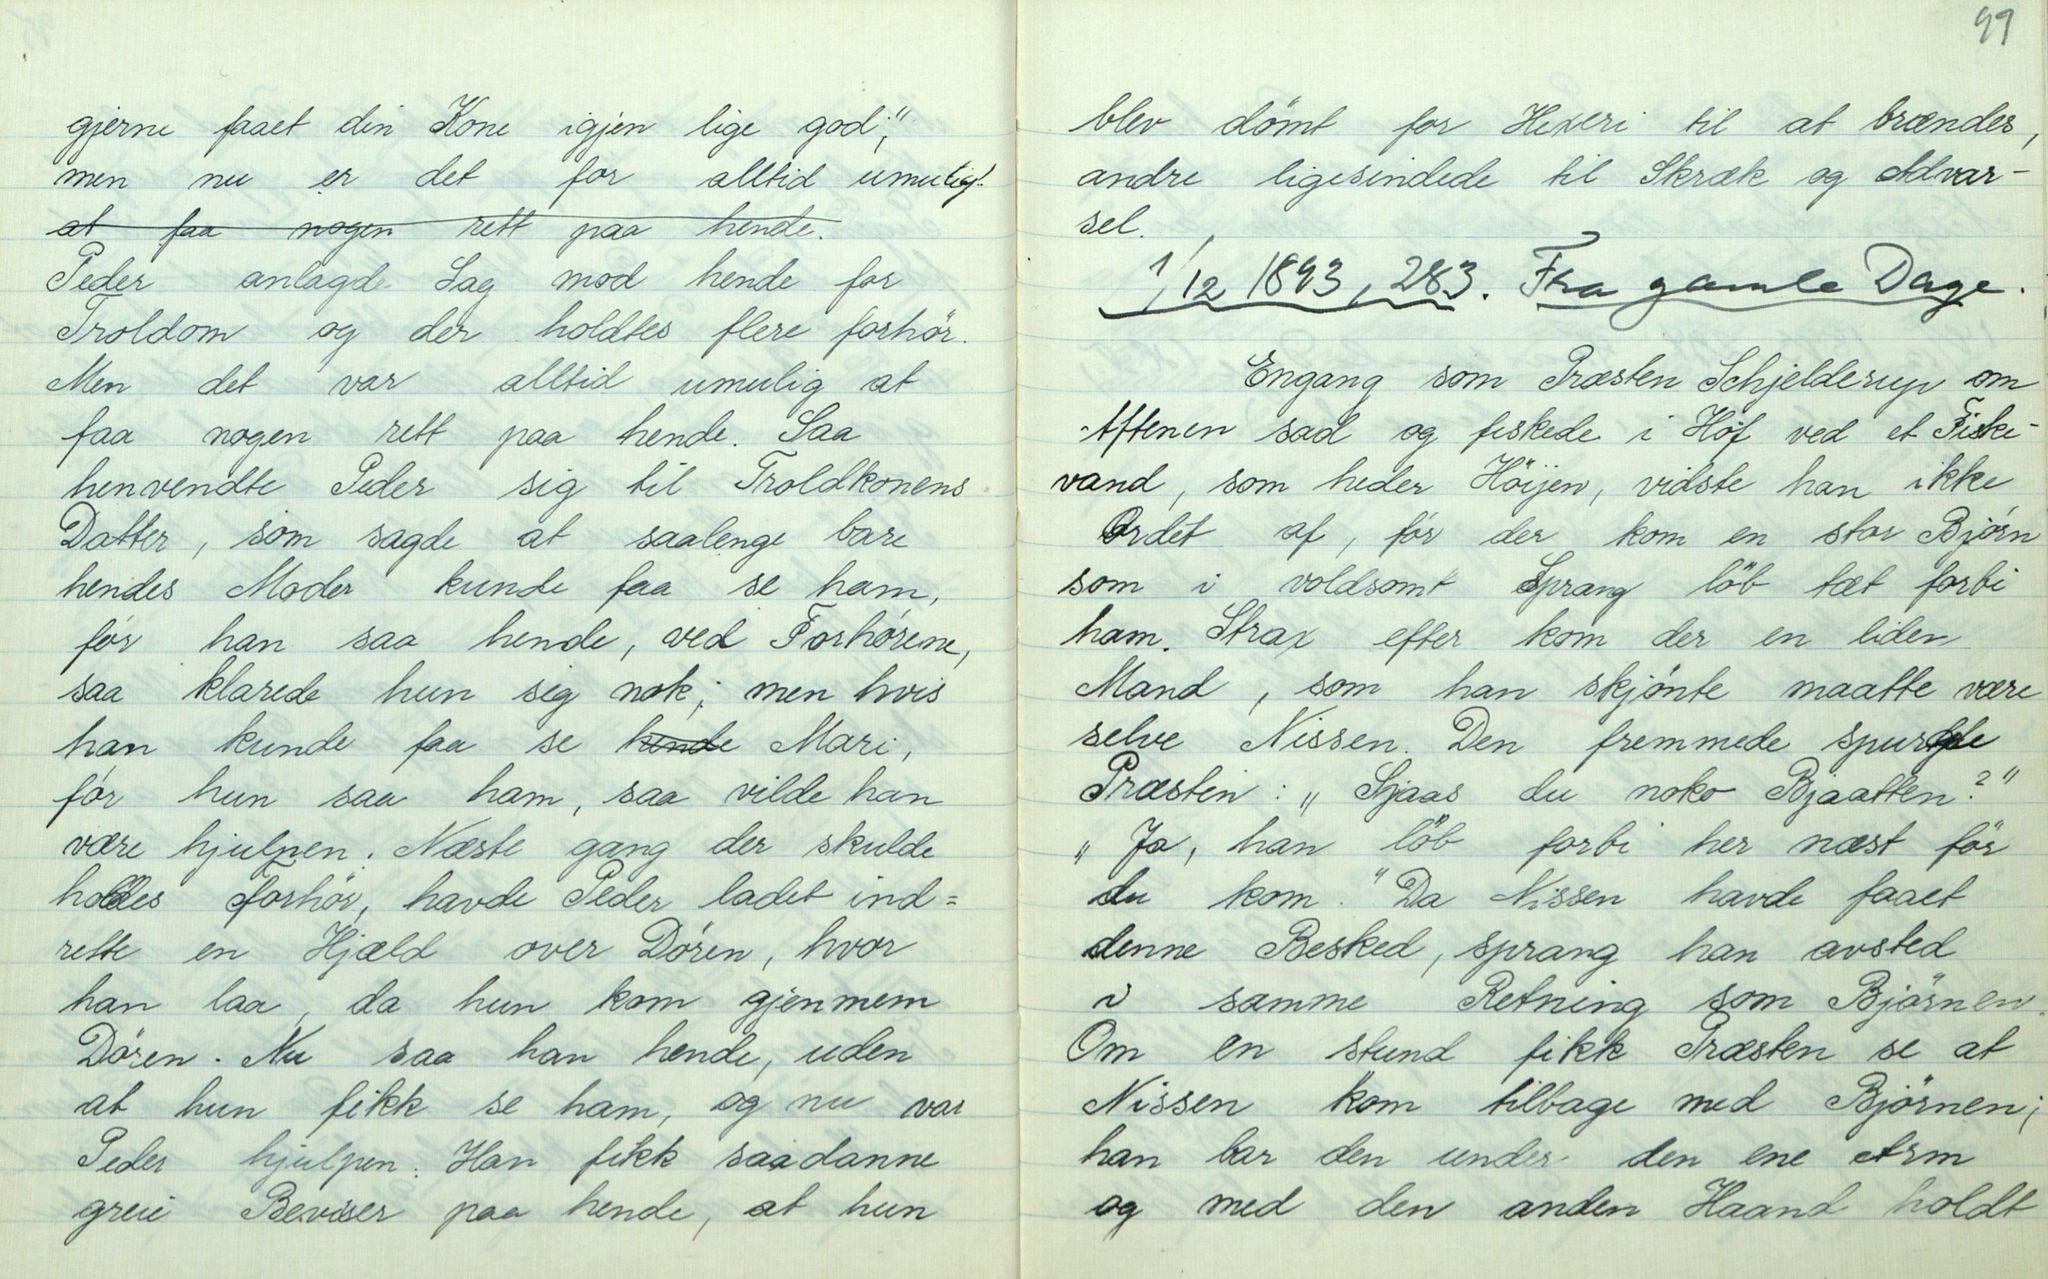 gjerne faaet din Kone igjen lige god;"
men nu er det for alltid umulig.
at faa nogen rett paa hende.
Peder anlagde Sag mod hende for
Troldom og der holdtes flere forhör.
Men det var alltid umulig at
faa nogen rett paa hende. Saa
henvendte Peder sig til Troldkonens
Datter, som sagde at saalenge bare
hendes Moder kunde faa se ham,
før han saa hende, ved Forhørene,
saa klarede hun sig nok; men hvis
han kunde faa se hende Mari,
før hun saa ham, saa vilde han
være hjulpen. Næste gang der skulde
holdes Forhör, havde Peder ladet ind=
rette en Hjæld over Døren, hvor
han laa, da hun kom gjennem
Døren. Nu saa han hende, uden
at hun fikk se ham, og nu var
Peder hjulpen. Han fikk saadanne
greie Beviser paa hende, at hun
49
blev dömt for Hexeri til at brændes,
andre ligesindede til Skræk og Advar-
sel.
1/12 1893, 283. Fra gamle Dage.
Engang som Præsten Schjelderup om
Aftenen sad og fiskede i Hof ved et Fiske-
vand, som heder Höijen, vidste han ikke
Ordet af, før der kom en stor Bjørn
som i voldsomt Sprang löb tæt forbi
ham. Strax efter kom der en liden
Mand, som han skjønte maatte være
selve Nissen. Den fremmede spurgde
Præsten: „Sjaas du noko Bjaatten?"
„Ja, han löb forbi her næst för
du kom." Da Nissen havde faaet
denne Besked, sprang han avsted
i samme Retning som Björnen.
Om en stund fikk Præsten se at
Nissen kom tilbage med Björnen;
han bar den under den ene Arm
og med den anden Haand holdt